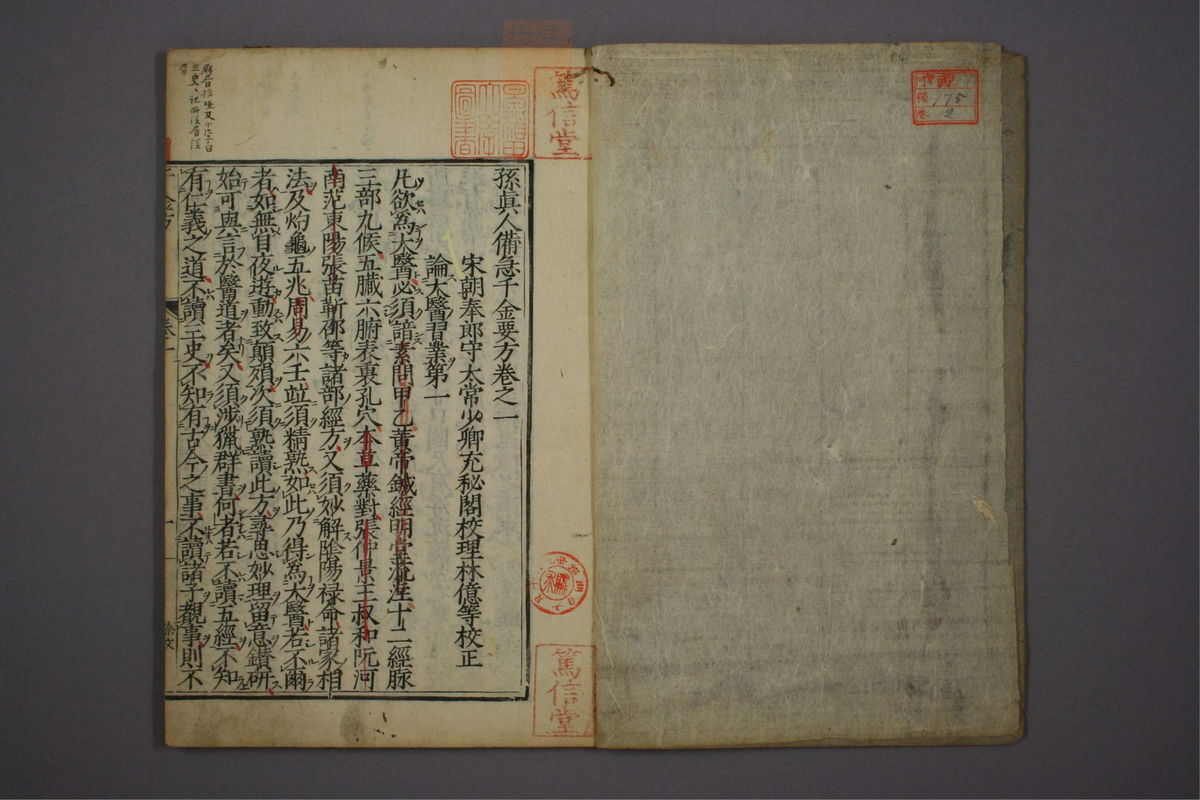 175
2
篤信堂
篤信堂
孫真人備急千金要方卷之一
宋朝奉郎守太常少卿充秘閣校理林億等校正
論大醫習業第一
凡欲為大醫必須諳素問甲乙黃帝鍼經明堂流注十二經脉
三部九候五臟六腑表裏孔穴本草藥對張仲景王叔和阮河
南范東陽張苗靳邵等諸部經方又須妙解陰陽禄命諸家相
法及灼龜五兆周易六壬竝須精熟如此乃得為大醫若不爾
者如無目夜遊動致顛殞次須熟讀此方尋思妙理留意鑽研
始可與言於醫道者矣又須涉獵群書何者若不讀五經不知
有仁義之道不讀三史不知有古今之事不讀諸子覩事則不